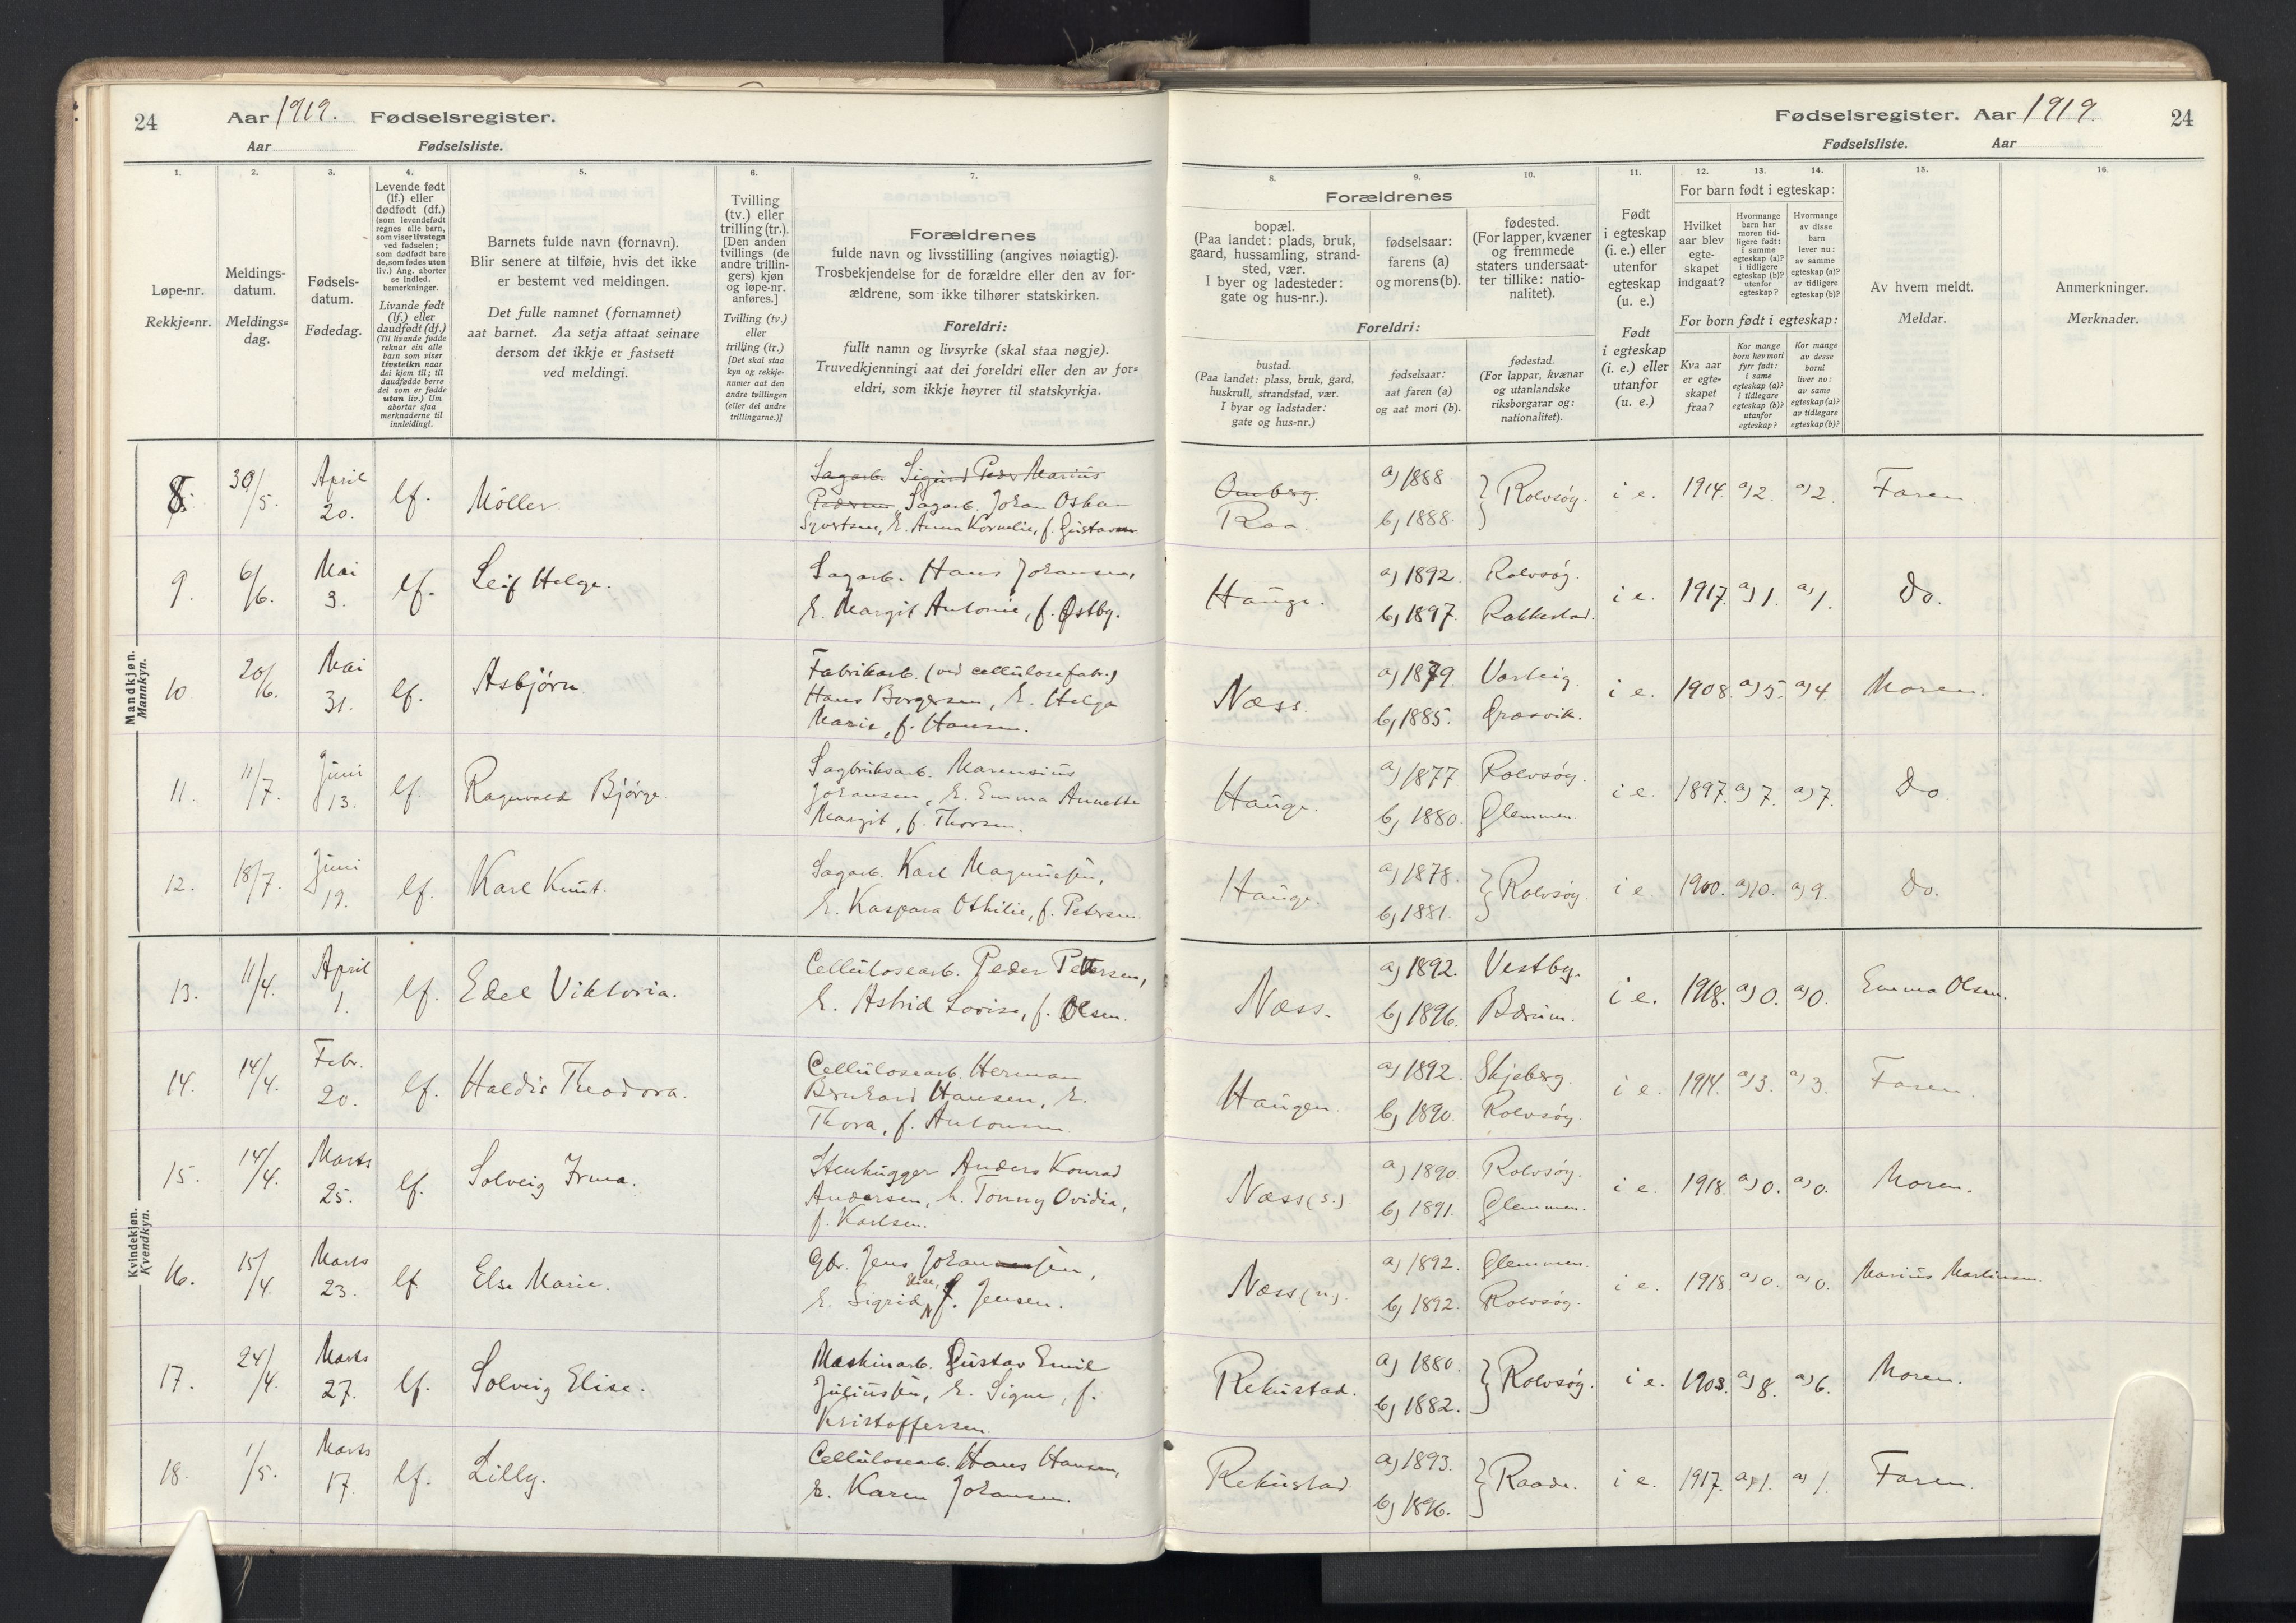 24 Aar 1919. Fødselsregister.
Aar Fødselsliste.
1. 2. 3. 4. 5. 6. 7.
Løpe-nr.
Rekkje=nr.
Meldings-
datum.
Meldings=
dag.
Fødsels-
datum.
Fødedag.
Levende født
(lf.) eller
dødfødt (df.)
(som levendefødt
regnes alle barn,
som viser livstegn
ved fødselen;
som dødfødt bare
de, som fødes uten
liv.) Ang. aborter
se indled.
bemerkninger.
Livande født
(lf.) eller
daudfødt (df.)
(Til livande fødde
reknar ein alle
barn som viser
livsteikn naar
dei kjem til; til
daudfødde berre
dei som er fødde
utan liv.) Um
abortar sjaa
merknaderne til
innleidingi.
Barnets fulde navn (fornavn).
Blir senere at tilføie, hvis det ikke
er bestemt ved meldingen.
Det fulle namnet (fornamnet)
aat barnet. Aa setja attaat seinare
dersom det ikkje er fastsett
ved meldingi.
Tvilling
(tv.) eller
trilling (tr.).
[Den anden
tvillings (de
andre trillin-
gers) kjøn
og løpe-nr.
anføres.]
Tvilling (tv.)
eller
trilling (tr.)
[Det skal staa
kyn og rekkje-
numer aat den
andre tvillingen
(eller dei andre
trillingarne.)]
Forældrenes
fulde navn og livsstilling (angives nøiagtig).
Trosbekjendelse for de forældre eller den av for-
ældrene, som ikke tilhører statskirken.
Foreldri:
fullt namn og livsyrke (skal staa nøgje).
Truvedkjenningi aat dei foreldri eller den av for=
eldri, som ikkje høyrer til statskyrkja.
Mandkjøn.
Mannkyn.
8. 30/5. April 20. lf. Møller
Sagarb. Sigurd Peder Marius
Pedersen, Sagarb. Johan Oskar
Syvertsen, h. Anna Kornelie, f. Gustavsen
9. 6/6. Mai 3. lf. Leif Helge.
Sagarb. Hans Johansen,
h. Margit Antonie, f. Østby.
10 20/6. Mai 31. lf. Asbjørn.
Fabrikarb. (ved cellulosefabr.)
Hans Borgersen, h. Helga
Marie, f. Hansen.
11. 11/7. Juni 13. lf. Ragnvald Bjørge.
Sagbruksarb. Marensius
Johansen, h. Emma Annette
Margit, f. Thorsen.
12. 18/7. Juni 19. lf. Karl Knut.
Sagarb. Karl Magnussen,
h. Kaspara Othilie, f. Petersen.
Kvindekjøn.
Kvendkyn.
13. 11/4. April 1. lf. Edel Viktoria.
Cellulosearb. Peder Pettersen,
h. Astrid Lovise, f. Olsen.
14. 14/4. Febr. 20. lf. Haldis Theodora.
Cellulosearb. Herman
Bernhard Hansen, h.
Thora, f. Antonsen.
15. 14/4. Marts 25. lf. Solveig Irma.
Stenhugger Anders Konrad
Andersen, h. Tonny Ovidia,
f. Karlsen.
16. 15/4. Marts 23. lf Else Marie.
Gbr. Jens Johansen,
h. Sigrid Elise, f. Jensen.
17. 24/4. Marts 27. lf. Solveig Elise.
Maskinarb. Gustav Emil
Juliussen, h. Signe, f.
Kristoffersen.
18. 1/5. Marts 17. lf. Lilly.
Cellulosearb. Hans Hansen,
h. Karen Johansen.
Fødselsregister. Aar 1919. 24
Fødselsliste. Aar
8. 9. 10. 11. 12. 13. 14. 15. 16.
Forældrenes
bopæl.
(Paa landet: plads, bruk,
gaard, hussamling, strand-
sted, vær.
I byer og ladesteder:
gate og hus-nr.).
fødselsaar:
farens (a)
og morens (b).
fødested.
(For lapper, kvæner
og fremmede
staters undersaat-
ter tillike: natio-
nalitet).
Foreldri:
bustad.
(Paa landet: plass, bruk, gard,
huskrull, strandstad, vær.
I byar og ladstader:
gate og hus=nr.)
fødselsaar:
aat faren (a)
og aat mori (b).
fødestad.
(For lappar, kvænar
og utanlandske
riksborgarar og:
nationalitet).
Født
i egteskap
(i. e.) eller
utenfor
egteskap
(u. e.)
Født
i egteskap
(i. e.) eller
utanfor
(u. e.)
For barn født i egteskap:
Hvilket
aar blev
egte-
skapet
indgaat?
Hvormange
barn har
moren tid-
ligere født:
i samme
egteskap (a)?
i tidligere
egteskap (b)?
utenfor
egteskap?
Hvormange
av disse
barn
lever nu:
av samme
egteskap (a)?
av tidligere
egteskap (b)?
For born født i egteskap:
Kva aar
er egte=
skapet
fraa?
Kor mange
born hev mori
fyrr født:
i same
egteskap (a)?
i tidlegare
egteskap (b)?
utanfor
egteskap?
Kor mange
av desse
borni
liver no:
av same
egteskap (a)?
av tidlegare
egteskap (b)?
Av hvem meldt.
Meldar.
Anmerkninger.
Merknader.
Omberg.
Raa. a) 1888 b) 1888. } Rolvsøy. i e. 1914. a) 2. a) 2. Faren.
Hauge. a) 1892. Rolvsøy. b) 1897. Rakkestad. i e. 1917. a) 1. a) 1. Do.
Næss. a) 1879. Varteig. b) 1885. Græsvik. i e. 1908. a) 5. a) 4. Moren.
Hauge. a) 1877. Rolvsøy. b) 1880. Glemmen. i e. 1897. a) 7. a) 7. Do.
Hauge. a) 1878. b) 1881. } Rolvsøy i e. 1900. a) 10. a) 9. Do.
Næss. a) 1892. Vestby. b) 1896. Bærum. i e. 1918. a) 0. a) 0. Emma Olsen.
Haugen. a) 1892. Skjeberg. b) 1890. Rolvsøy. i e. 1914. a) 3. a) 3. Faren.
Næss (s.) a) 1890. Rolvsøy. b) 1891. Glemmen. i e. 1918. a) 0. a) 0. Moren.
Næss (n) a) 1892. Glemmen. b) 1892. Rolvsøy. i e. 1918. a) 0. a) 0. Marius Martinsen.
Rekustad. a) 1880. b) 1882. } Rolvsøy. i e. 1903. a) 8. a) 6. Moren.
Rekustad. a) 1893. b) 1896. } Raade. i e. 1917. a) 1. a) 1. Faren.